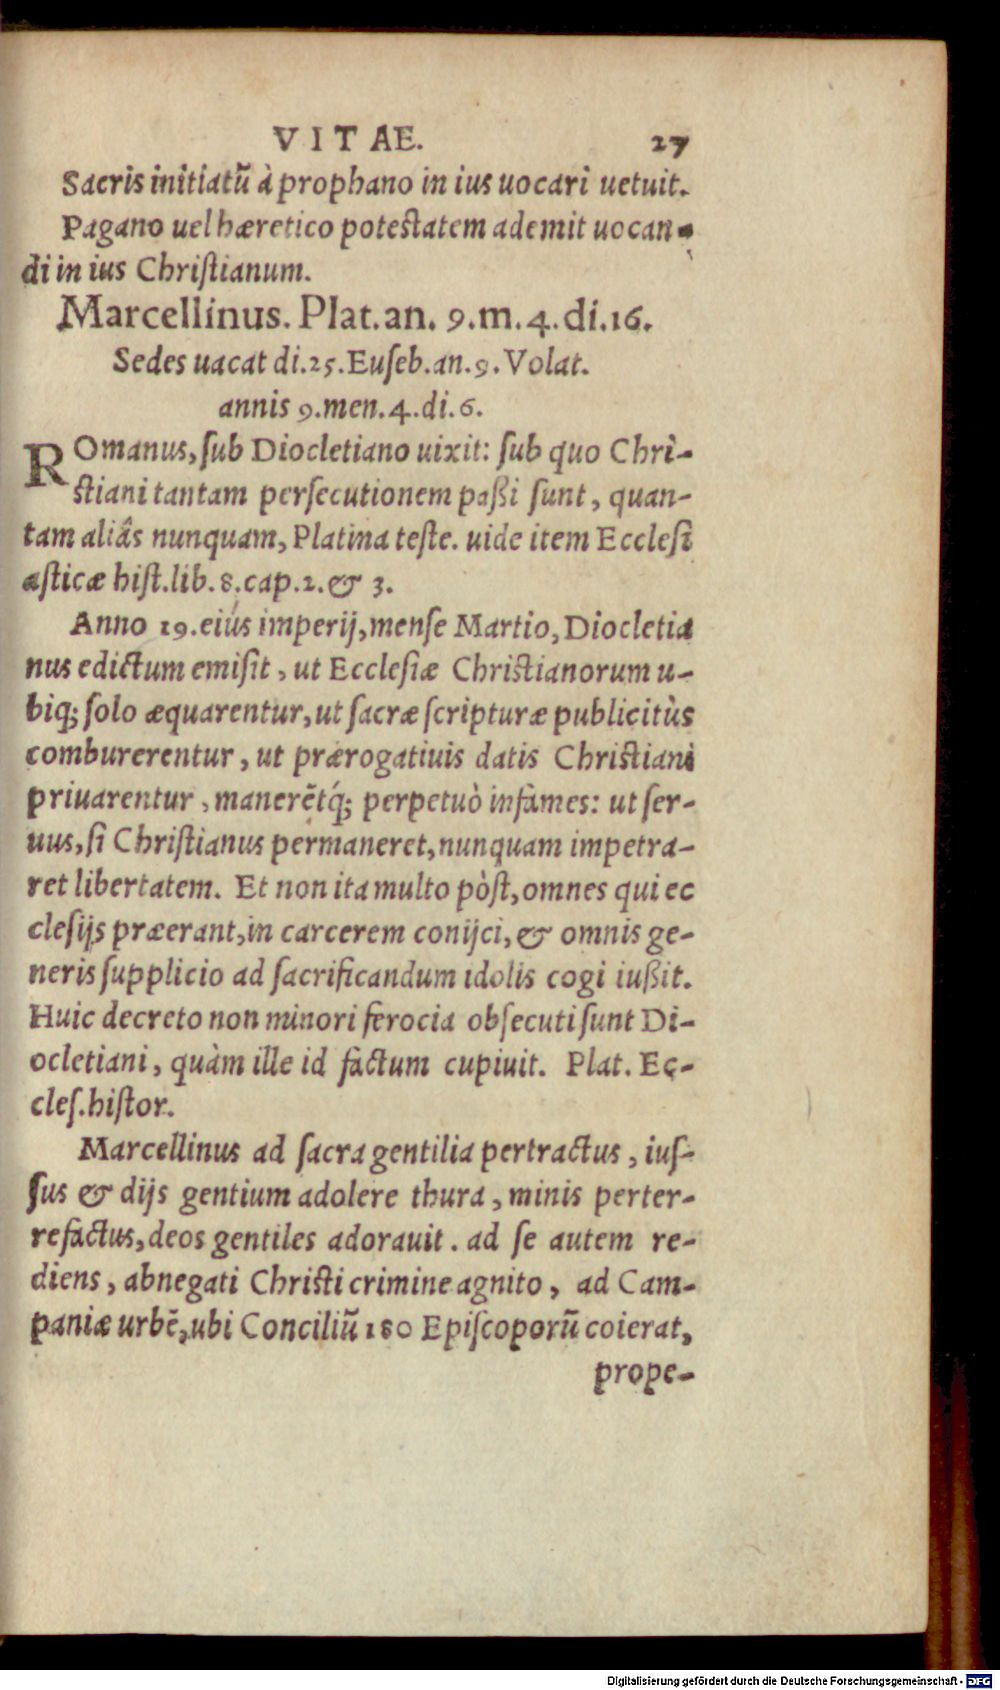 VITAE. 27
Sacris initiatũ à prophano in ius uocari uetuit.
Pagano uel hæretico potestatem ademit uocan-
di in ius Chriſtianum.
Marcellinus. Plat. an. 9. m. 4. di. 16.
Sedes uacat di. 25. Euſeb. an. 9. Volat.
annis 9. men. 4. di. 6.
ROmanus, ſub Diocletiano uixit: ſub quo Chri-
stiani tantam perſecutionem paßi ſunt, quan-
tam aliâs nunquam, Platina teſte. uide item Eccleſi
aſticæ hiſt. lib. 8. cap. 2. & 3.
Anno 19. eius imperij, menſe Martio, Diocletia
nus edictum emiſit, ut Eccleſiæ Christianorum u-
biq; ſolo æquarentur, ut ſacræ ſcripturæ publicitùs
comburerentur, ut prærogatiuis datis Christiani
priuarentur, manerẽtq́; perpetuò infames: ut ſer-
uus, ſi Chriſtianus permaneret, nunquam impetra-
ret libertatem. Et non ita multo pòſt, omnes qui ec
cleſijs præerant, in carcerem conijci, & omnis ge-
neris ſupplicio ad ſacrificandum idolis cogi iußit.
Huic decreto non minori ferocia obſecuti ſunt Di-
ocletiani, quàm ille id factum cupiuit. Plat. Ec-
cleſ. hiſtor.
Marcellinus ad ſacra gentilia pertractus, iuſ-
ſus & dijs gentium adolere thura, minis perter-
refactus, deos gentiles adorauit. ad ſe autem re-
diens, abnegati Christi crimine agnito, ad Cam-
paniæ urbẽ, ubi Conciliũ 180 Epiſcoporũ coierat,
prope-
Digitalisierung gefördert durch die Deutsche Forschungsgemeinschaft - DFG